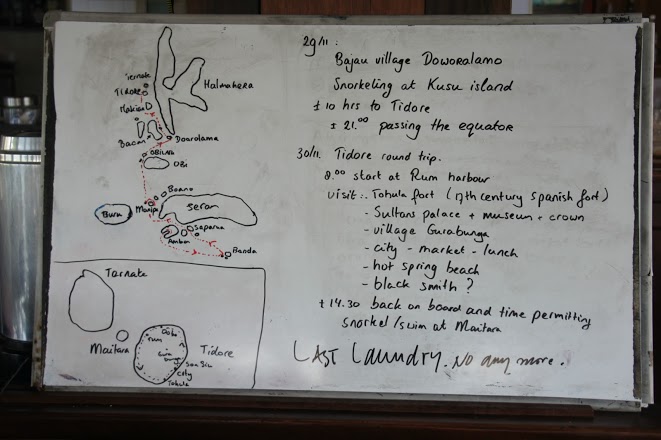 Ternate
TiDORE
Makian
Halmahera
Bacan
Doarolama
OBiLatu
OBi
Boano
Manipa
Seran
Buru
Saparua
Ambon
Banda
Tarnate
Maitara
Tidore
rum
Soa Siu
City
Tahula
29/11:
Bajau village Doworalamo
Snorkeling at Kusu island
± 10 hrs to Tidore
± 21.00 passing the equator
30/11. Tidore round trip.
8.00 start at Rum harbour
visit: - Tahula fort (17th century Spanish fort)
- Sultans palace + museum + crown
- village Gurabunga
- city - market - lunch
- hot spring beach
- black smith ?
± 14.30 back on board and time permitting
snorkel/swim at Maitara
LAST Laundry. No any more.